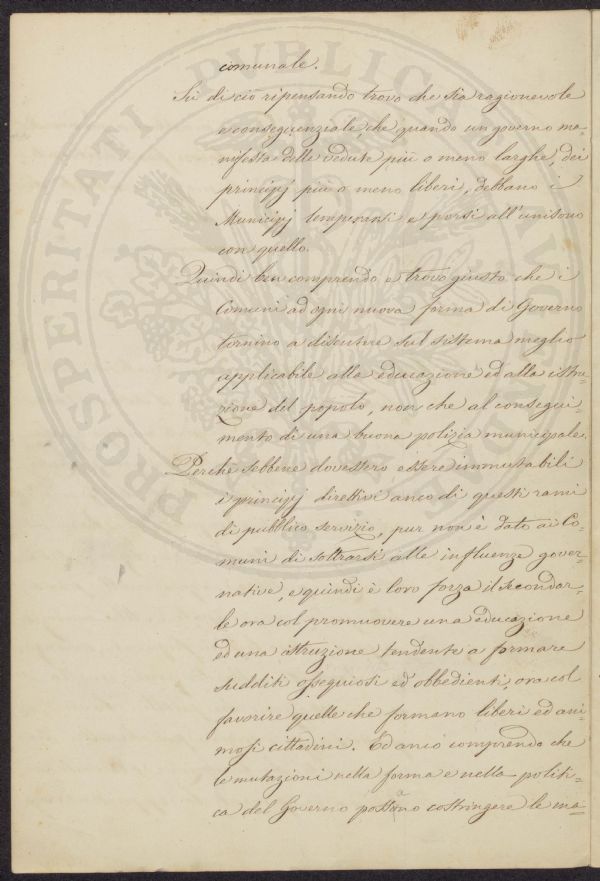 comunale.
Su di ciò ripensando trovo che sia ragionevole
e conseguenziale, che quando un governo ma-
nifesta delle vedute più o meno larghe, dei
principj più o meno liberi, debbano i
Municipj temperarsi e porsi all'unisono
con quello.
Quindi ben comprendo e trovo giusto che i
Comuni ad ogni nuova forma di Governo
tornino a discutere sul sistema meglio
applicabile alla educazione ed alla istru-
zione del popolo, non che al consegui-
mento di una buona polizia municipale.
Perchè sebbene dovessero essere immutabili
i principj direttivi anco di questi rami
di pubblico servizio, pur non è dato ai Co-
muni di sottrarsi alle influenze gover-
native, e quindi è loro forza il secondar-
le ora col promuovere una educazione
ed una istruzione tendente a formare
sudditi ossequiosi ed obbedienti, ora col
favorire quelle che formano liberi ed ani-
mosi cittadini. Ed anco comprendo che
le mutazioni nella forma e nella politi-
ca del Governo possano costringere le ma-
PROSPERITATI PVBLICAE